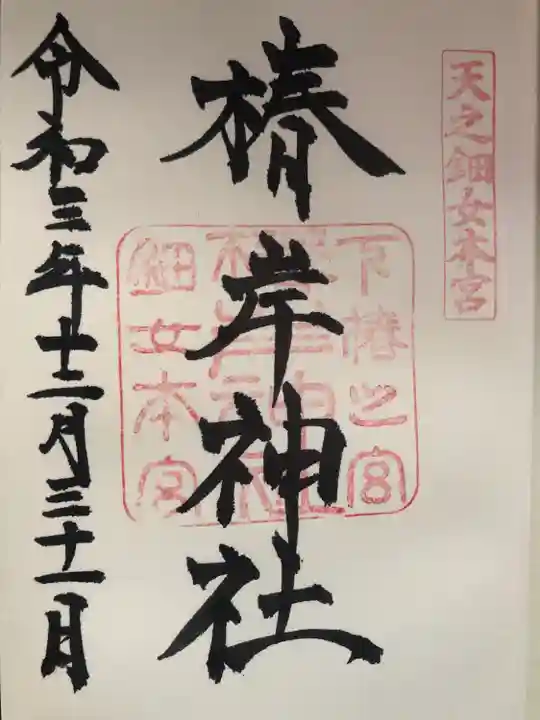 天之鈿女本宮
椿岸神社
下椿之宮
椿岸神社
鈿女本宮
令和三年十二月三十一日